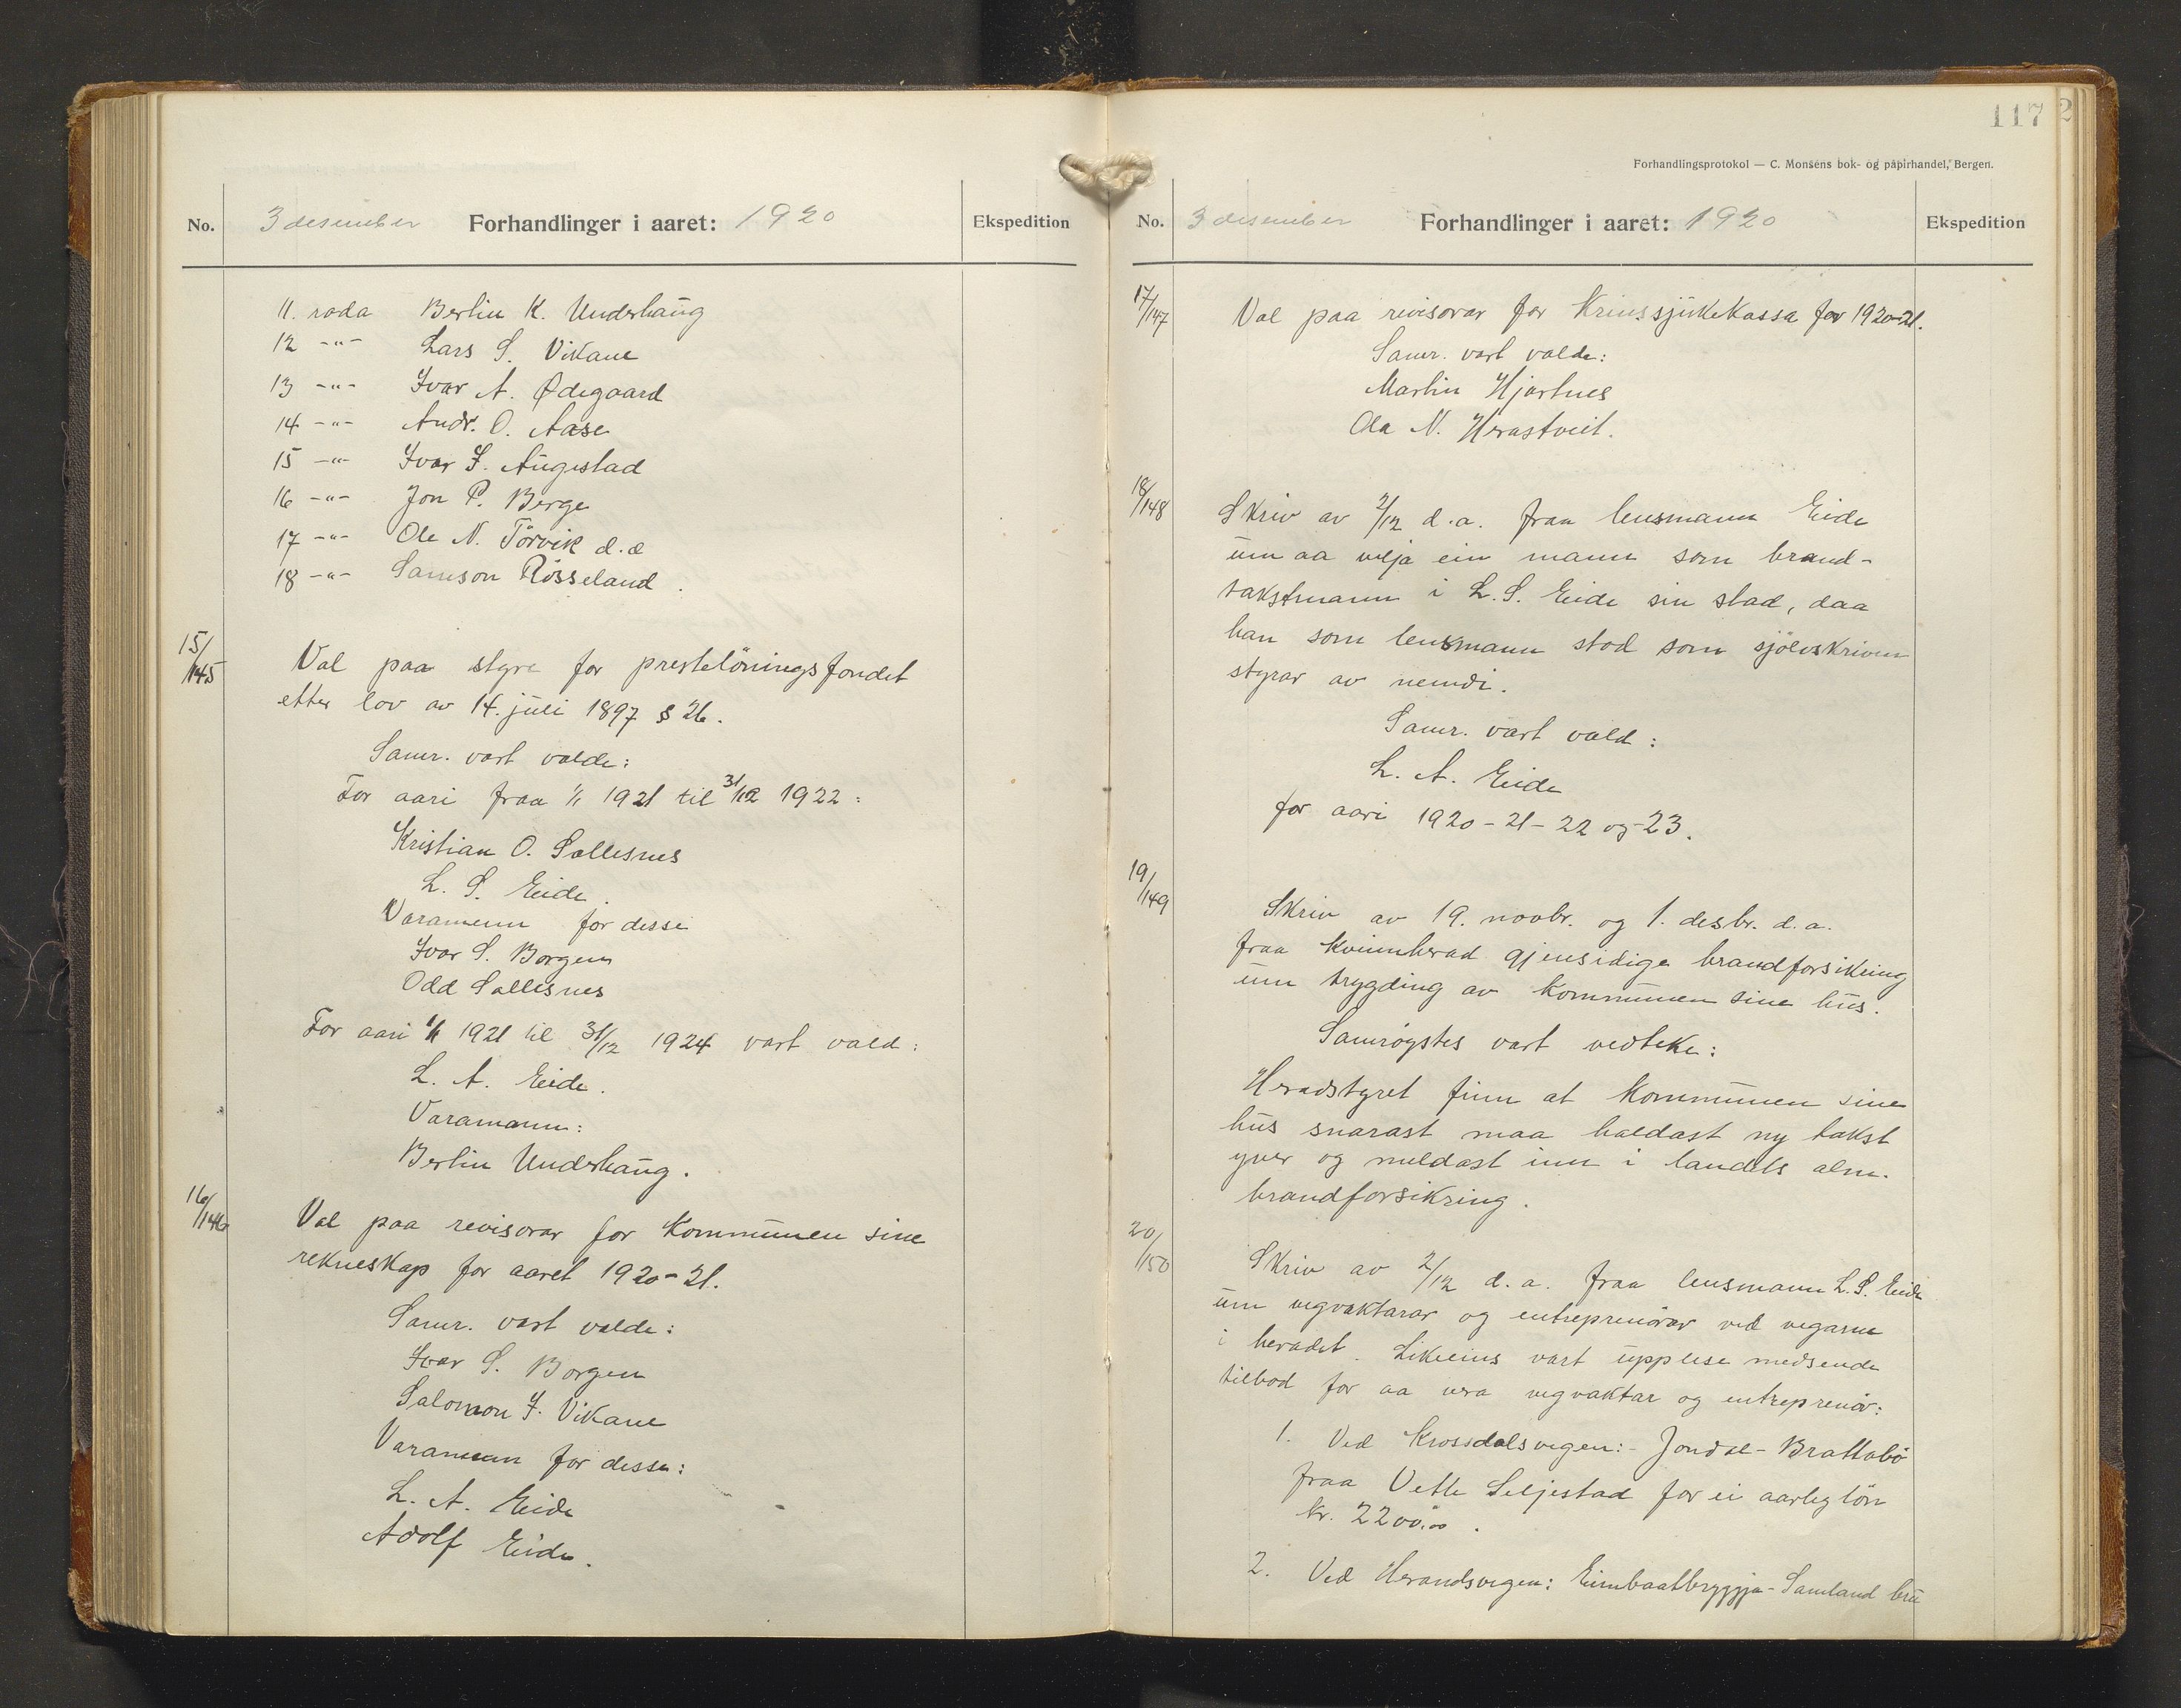 No. 3 desember Forhandlinger i aaret: 1920 Ekspedition
11. roda Berlin K. Underhaug
12 -"- Lars S. Vikane
13 -"- Ivar A. Ødegaard
14 -"- Andr. O. Aase
15 -"- Ivar I. Augestad
16 -"- Jon P. Berge
17 -"- Ole N. Törvik d.e
18 -"- Samson Rösseland.
15/145 Val paa styre for prestelöningsfondet
etter lov av 14. juli 1897 § 26.
Samr. vart valde:
For aari fraa 1/1 1921 til 31/12 1922:
Kristian O. Sollesnes
L. S. Eide.
Varamenn for desse
Ivar S. Borgen
Odd Sollesnes
For aari 1/1 1921 til 31/12 1924 vart vald:
L. A. Eide.
Varamann:
Berlin Underhaug.
16/146 Val paa revisorar for kommunen sine
rekneskap for aaret 1920-21.
Samr. vart valde:
Ivar S. Borgen
Salomon I. Vikane
Varamenn for desse:
L. A. Eide
Adolf Eide.
117
Forhandlingsprotokol — C. Monsens bok- og papirhandel, Bergen.
No. 3 desember Forhandlinger i aaret: 1920 Ekspedition
17/147 Val paa revisorar for Krinssjukekassa for 1920-21.
Samr. vart valde:
Martin Hjartnes
Ola N. Herastveit.
18/148 Skriv av 2/12 d.a. fraa lensmann Eide
um aa velja ein mann som brand-
takstmann i L.S. Eide sin stad, daa
han som lensmann stod som sjölvskriven
styrar av nemdi.
Samr. vart vald:
L. A. Eide
for aari 1920-21-22 og -23.
19/149 Skriv av 19. novbr. og 1. desbr. d.a.
fraa Kvinnherad gjensidige brandforsikring
um trygding av kommunen sine hus.
Samrøystes vart vedteke:
Heradstyret finn at kommunen sine
hus snarast maa haldast ny takst
yver og meldast inn i landets alm.
brandforsikring.
20/150 Skriv av 2/12 d.a. fraa lensmann L.S. Eide
um vegvaktarar og entreprenörar ved vegarne
i heradet. Likeeins vart upplese medsende
tilbod for aa vera vegvaktar og entreprenör:
1. Ved Krossdalsvegen:- Jondal - Brattabö
fraa Vetle Seljestad for ei aarleg lön
kr. 2200.00.
2. Ved Herandsvegen: Eimbaatbryggja - Samland bru